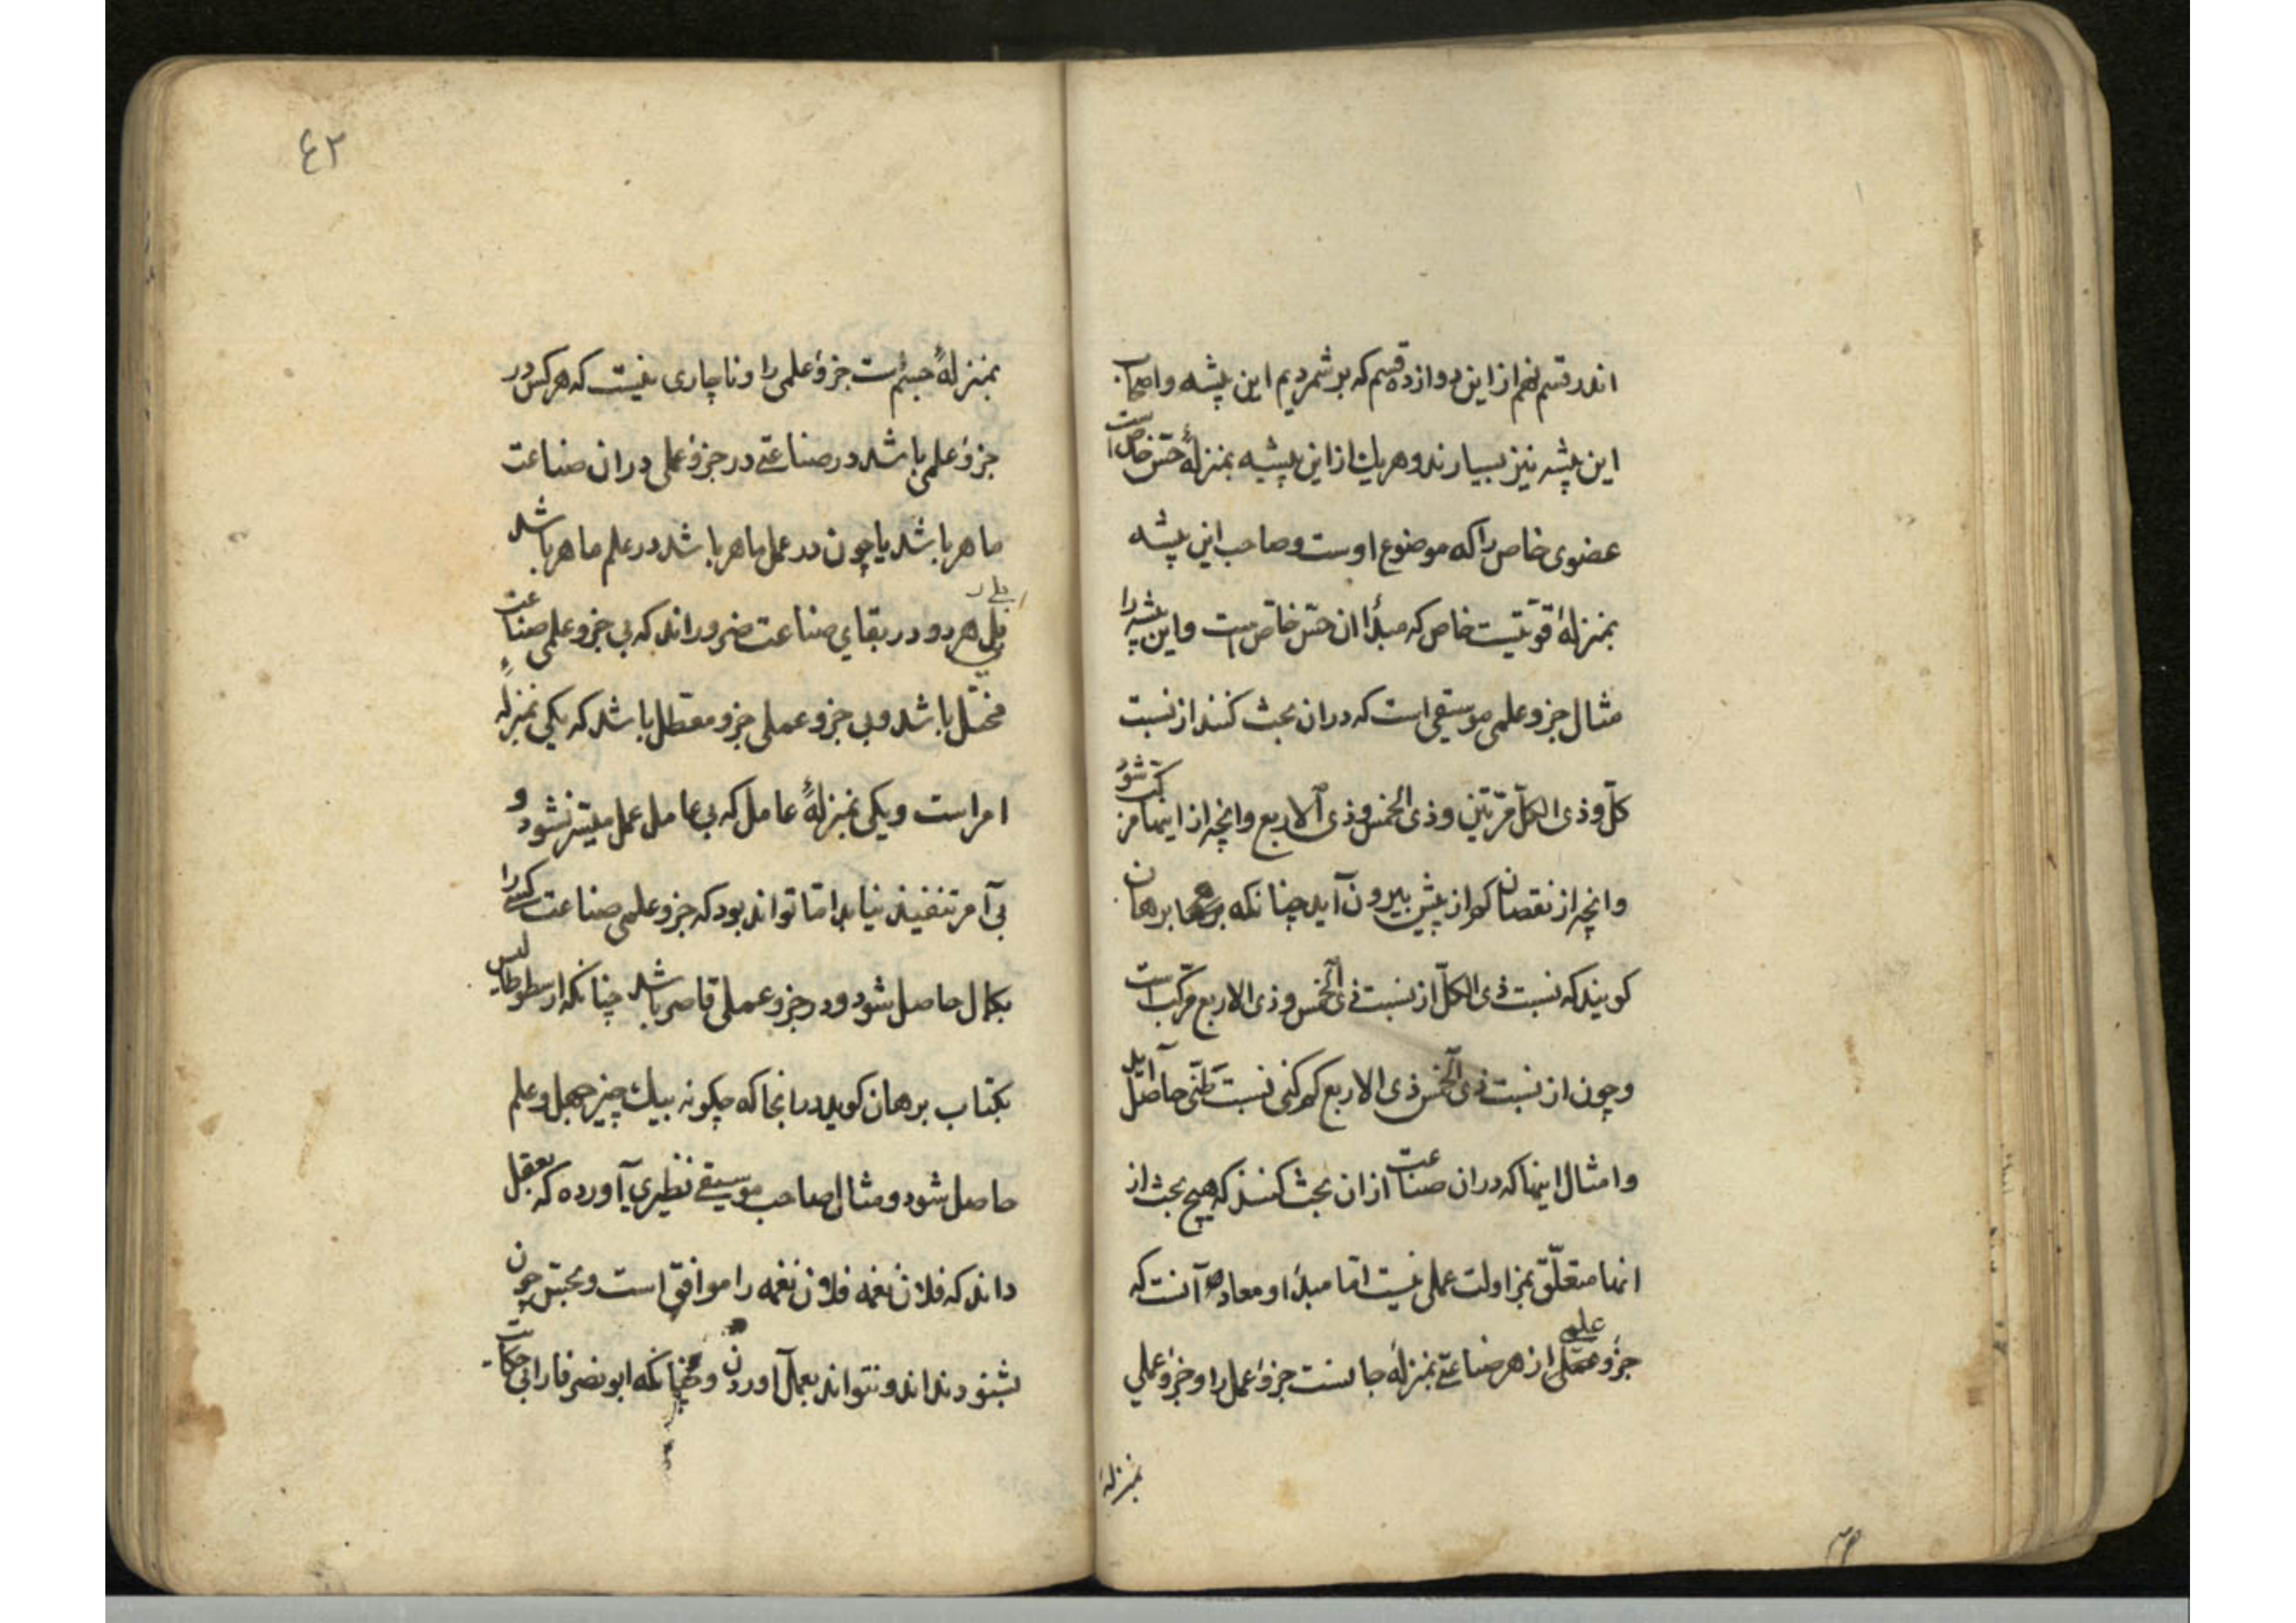 اندر قسم نهم از این دوازده قسم که بر شمردیم این پیشه و اصحاب
این پیشه نیز بسیارند و هریك از این پیشه بمنزلهٔ حس خاص است
عضوی خاص را که موضوع اوست و صاحب این پیشه
بمنزلهٔ قوتیست خاص که مبدأ ان حس خاص است و این پیشه را
مثال جزو علمی موسیقی است که در ان بحث کنند از نسبت
کل و ذی الکل مرتین و ذی الخمس و ذی الاربع و انچه از اینها مرکب شود
و انچه از نقصان از پیش بیرون آید چنانکه برهان
کویند که نسبت ذی الکل از نسبت ذی الخمس و ذی الاربع مرکب است
و چون از نسبت ذی الخمس ذی الاربع کم کنی نسبت طنینی حاصل آید
و امثال اینها که در ان صناعت از ان بحث کنند که هیچ بحث از
انها متعلق بمزاولت عملی نیست اما مبدأ و معاد آنست که
جزو علمی از هر صناعتی بمنزلهٔ جانست جزو عمل را و جزو عملی
بمنزلهٔ
٤٢
بمنزلهٔ جسم است جزو علمی را و ناچاری نیست که هرکس در
جزو علمی باشد در صناعتی در جزو عملی در ان صناعت
ماهر باشد یا چون در عمل ماهر باشد در علم ماهر باشد
بلی هر دو در بقای صناعت ضرور اند که بی جزو علمی صناعت
مختل باشد و بی جزو عملی جزو معطل باشد که یکی بمنزلهٔ
امر است و یکی بمنزلهٔ عامل که بی عامل عمل میسر نشود و
بی آمر تنفیذ نیابد اما تواند بود که جزو علمی صناعت کسی را
بکمال حاصل شود و در جزو عملی قاصر باشد چنانکه ارسطوطالیس
بکتاب برهان کوید در انجا که چکونه بیك چیز جهل و علم
حاصل شود و مثال صاحب موسیقی نظیری آورده که بعقل
داند که فلان نغمه فلان نغمه را موافق است و بحس چون
بشنود نداند و نتواند بعمل آوردن و چنانکه ابو نصر فارابی حکایت